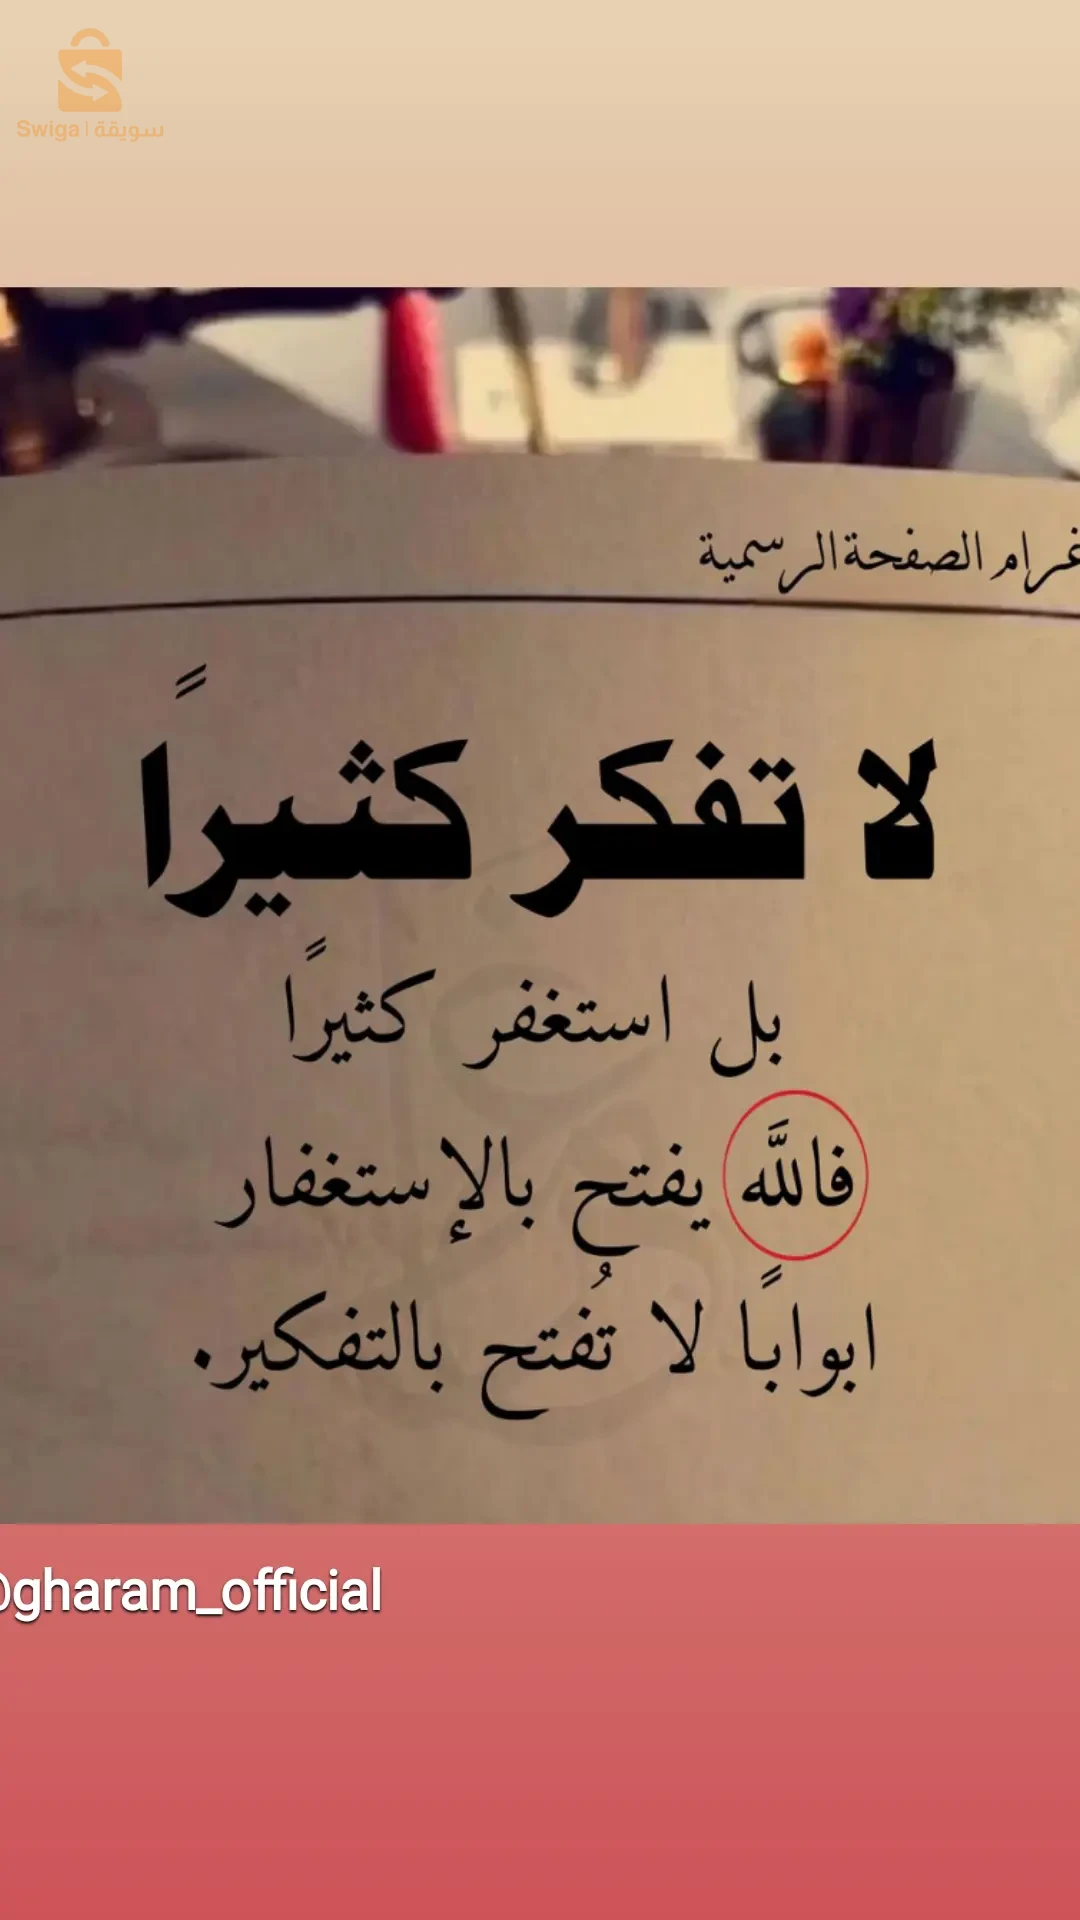 Swiga | سويقة
غرام الصفحة الرسمية
لا تفكر كثيراً
بل استغفر كثيراً
فاللَّه يفتح بالإستغفار
ابواباً لا تُفتح بالتفكير.
@gharam_official